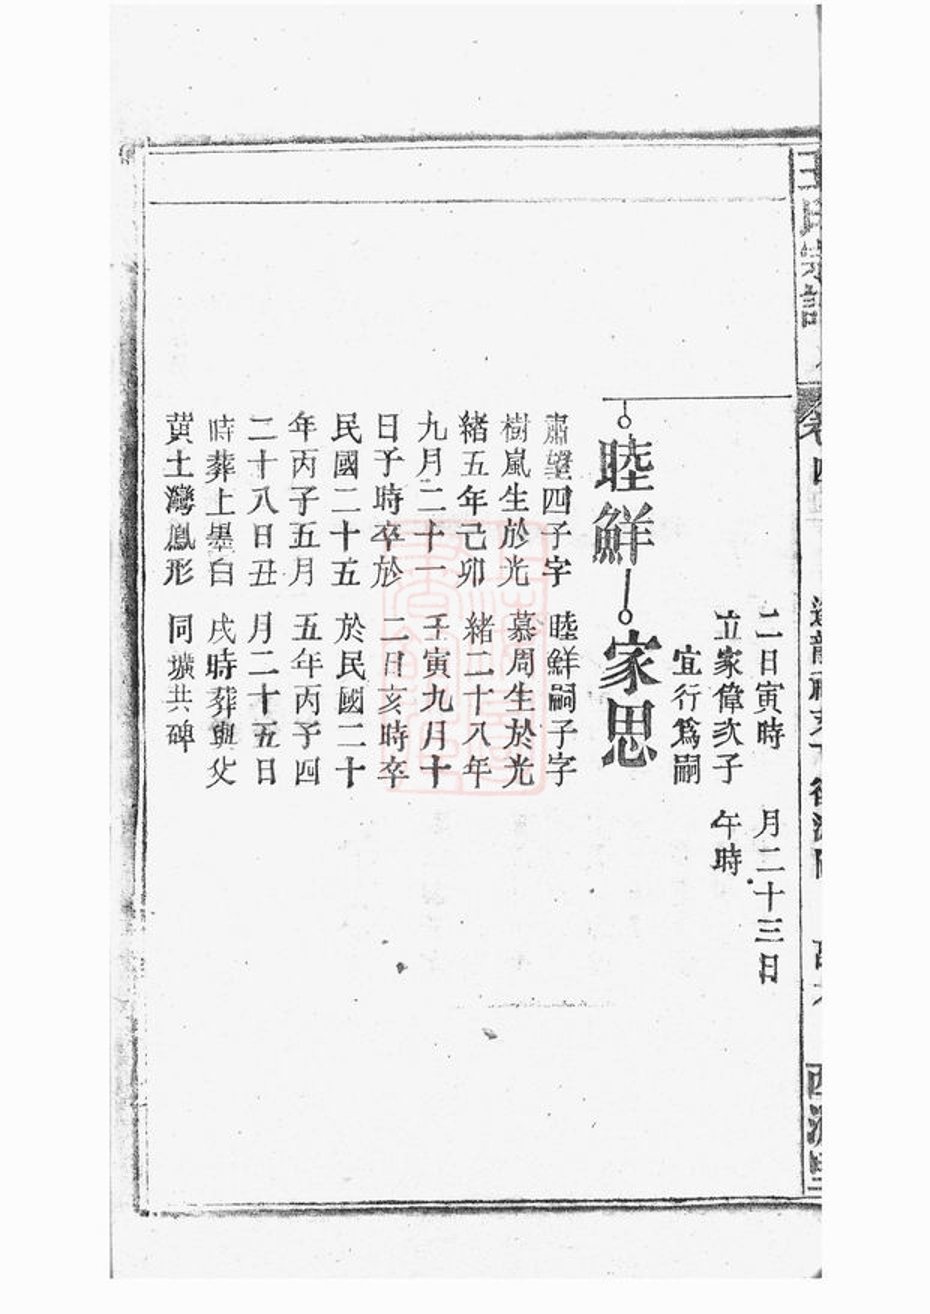 王氏宗譜
卷四
二日寅時
立家偉次子
宜行爲嗣
月二十三日
午時
睦鮮
家思
肅望四子字
樹嵐生於光
緒五年己卯
九月二十一
日子時卒於
民國二十五
年丙子五月
二十八日丑
時葬上墨白
黄土灣鳳形
睦鮮嗣子字
慕周生於光
緒二十八年
壬寅九月十
二日亥時卒
於民國二十
五年丙子四
月二十五日
戌時葬與父
同壙共碑